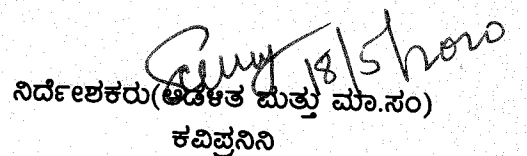 18/5/2020
ನಿರ್ದೇಶಕರು(ಆಡಳಿತ ಮತ್ತು ಮಾ.ಸಂ)
ಕವಿಪ್ರನಿನಿ